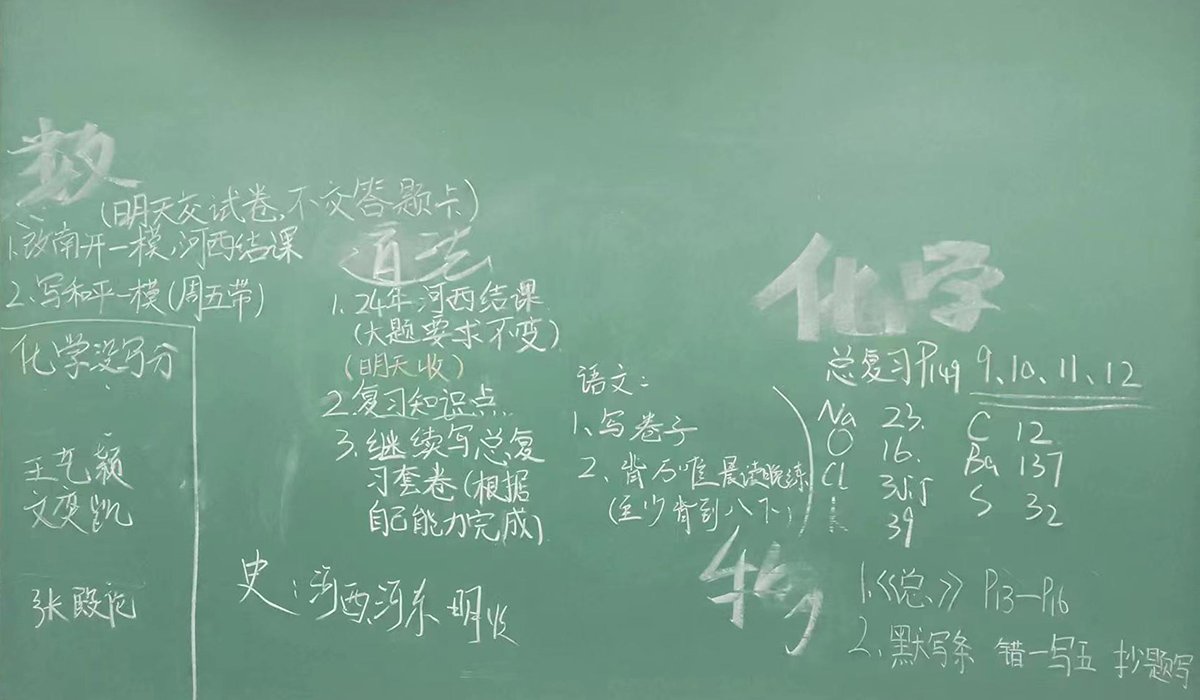 数
(明天交试卷,不交答题卡)
1.改南开一模,河西结课
2.写和平一模(周五带)
化学没写分
王艺颖
文奕凯
张殿
道法
1.24年河西结课
(大题要求不变)
(明天收)
2.复习知识点
3.继续写总复
习套卷(根据
自己能力完成)
史:河西,河东 明收
语文:
1、写卷子
2、背万唯晨读晚练
(至少背到八下)
化学
总复习P149 9、10、11、12
Na 23. C 12
O 16. Ba 137
Cl 35.5 S 32
K 39
物
1.《总》 P13—P16
2、默写条 错一写五 抄题写